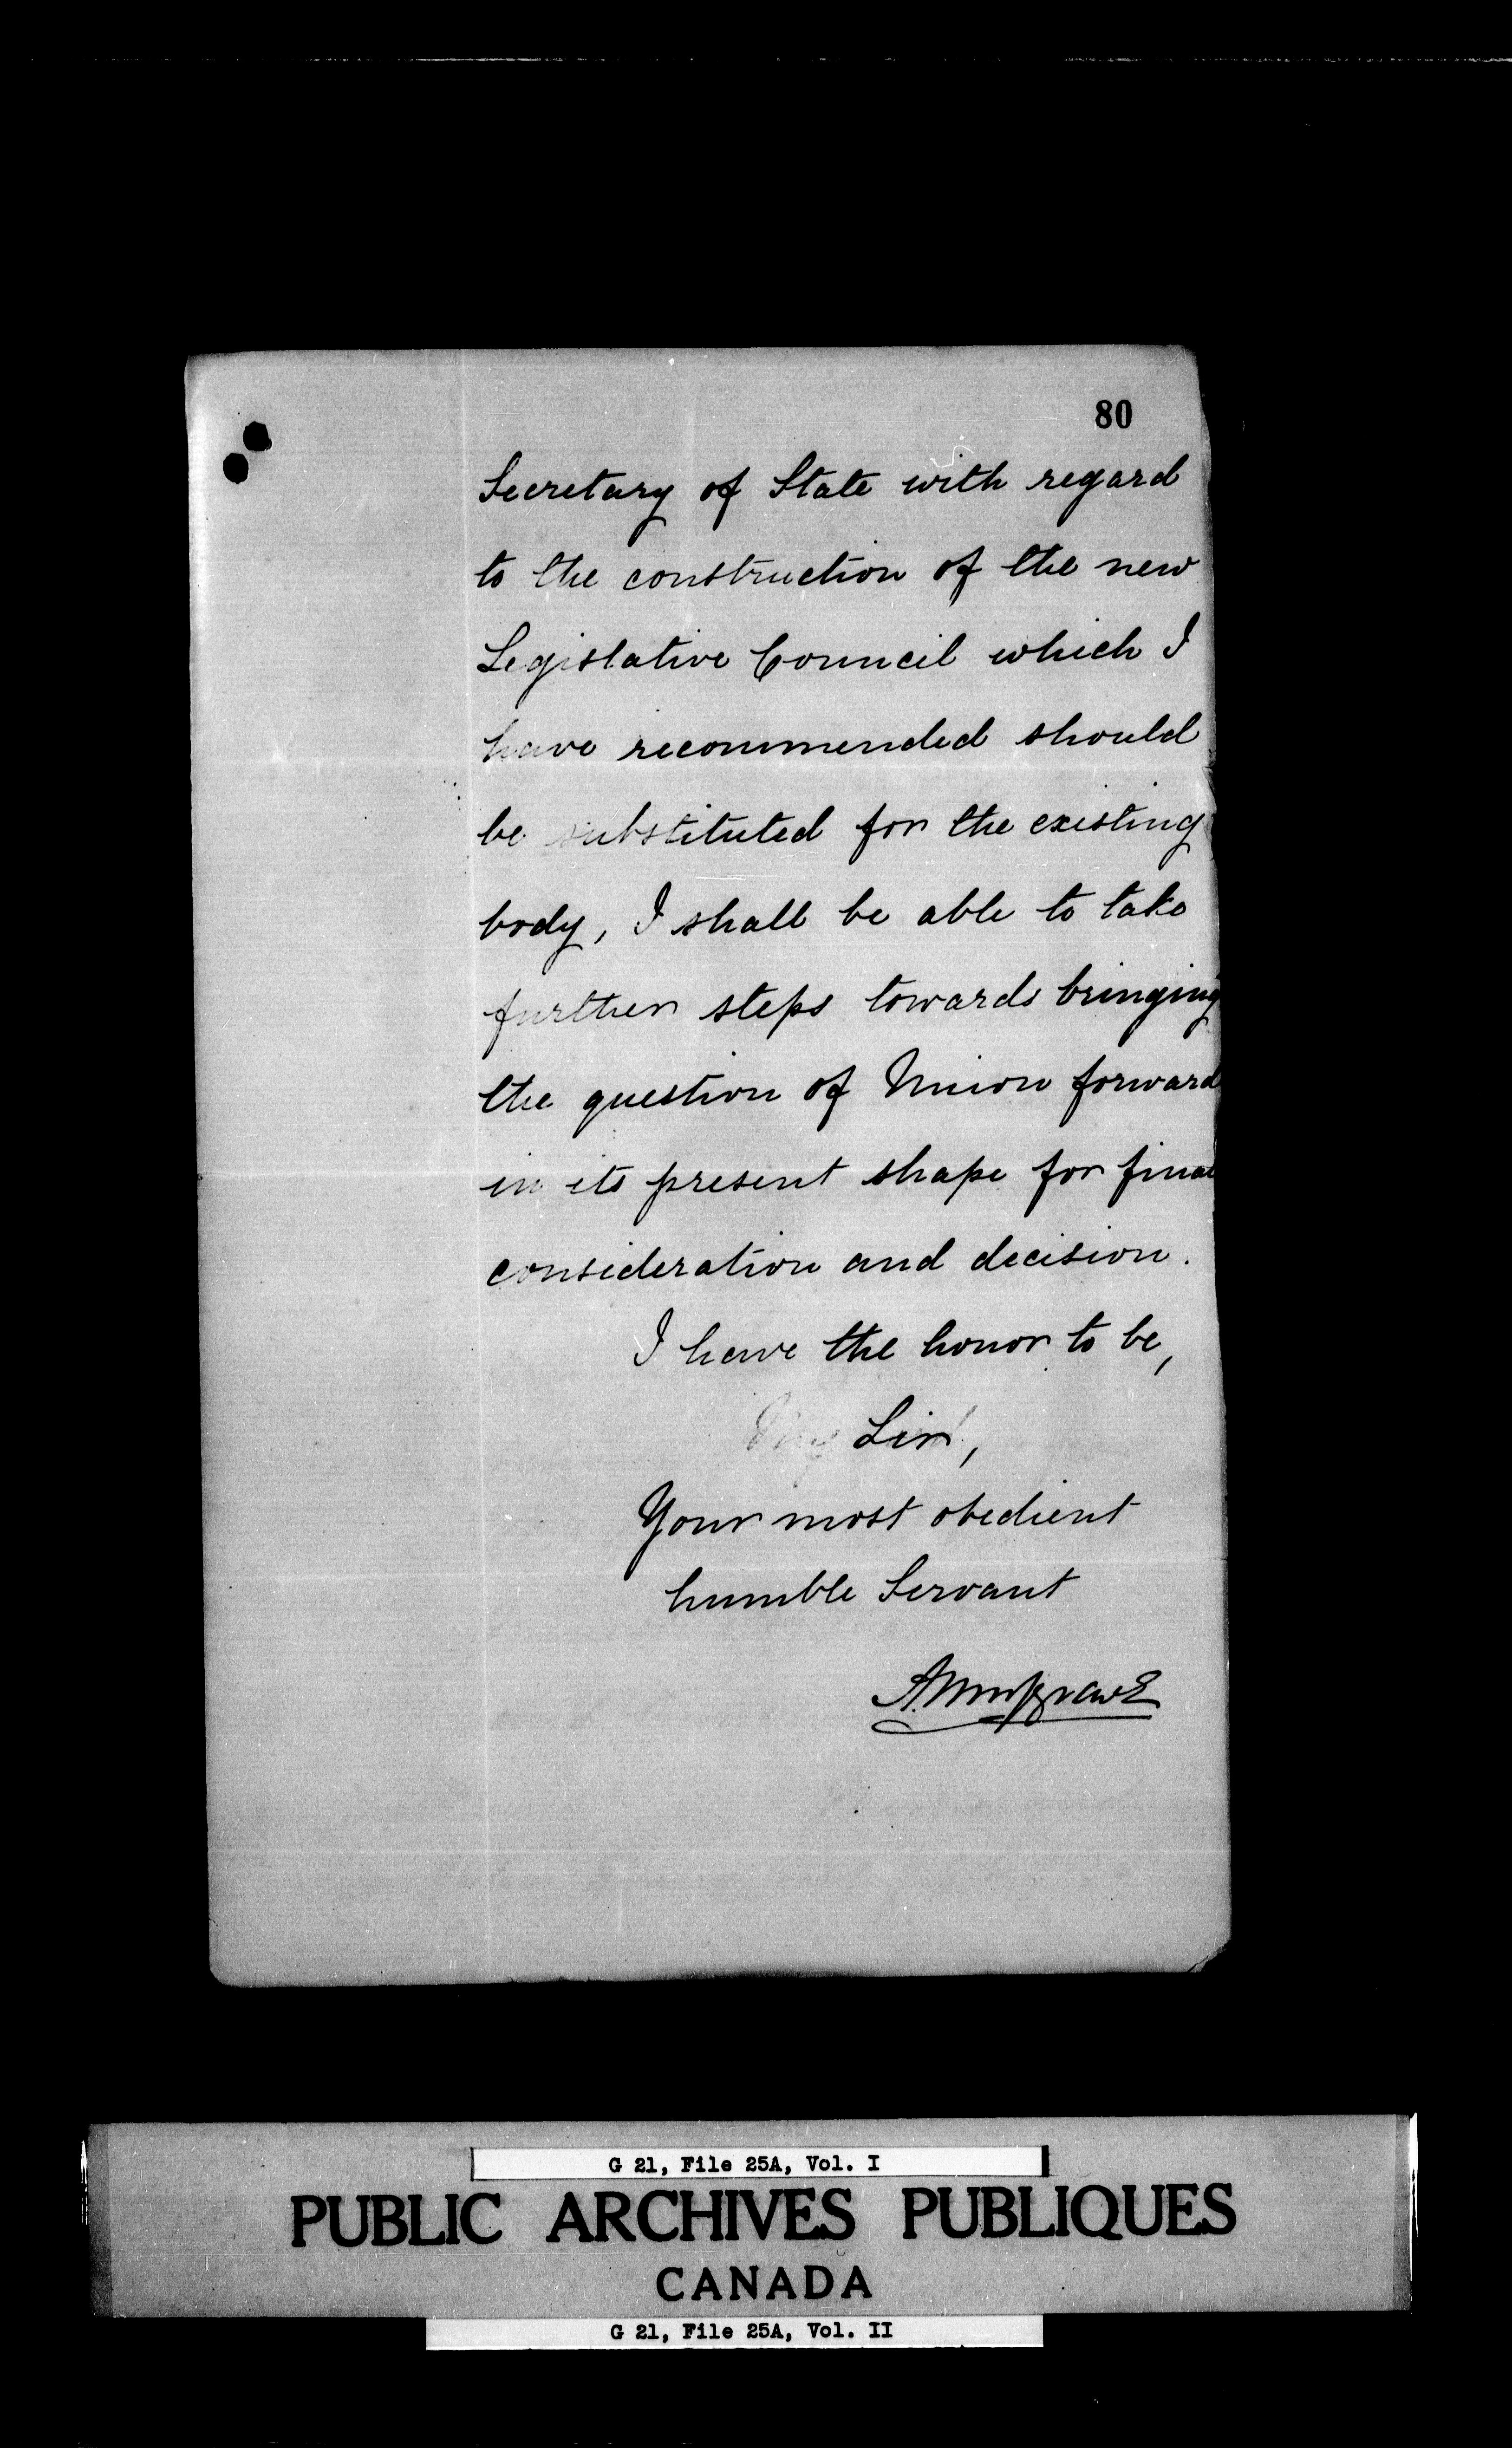 80
Secretary of State with regard
to the construction of the new
Legislative Council which I
have recommended should
be substituted for the existing
body, I shall be able to take
further steps towards bringing
the question of Union forward
in its present shape for final
consideration and decision.
I have the honor to be,
My Sir,
Your most obedient
humble Servant
A. Musgrave
G 21, File 25A, Vol. I
PUBLIC ARCHIVES PUBLIQUES
CANADA
G 21, File 25A, Vol. II